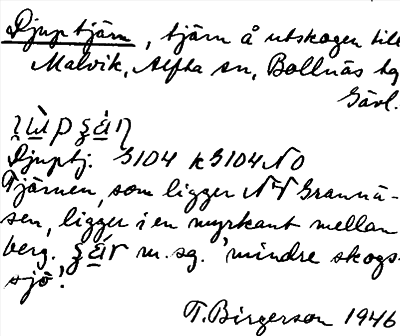 Djuptjärn, tjärn å utskogen till
Malvik, Alfta sn, Bollnäs tg
Gävl.
Djuptj. G104 k G104 NO
Tjärnen, som ligger NV Grannä-
sen, ligger i en myrkant mellan
berg. m. sg. 'mindre skogs-
sjö'.
T. Birgerson 1946